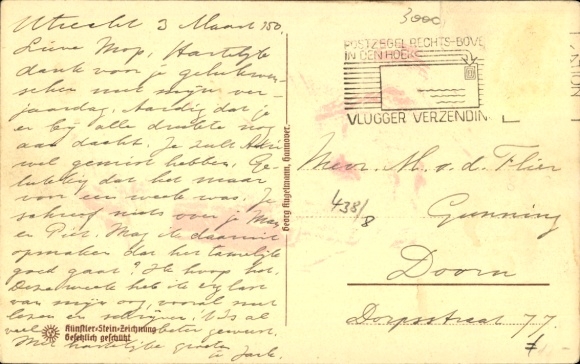 Utrecht 3 Maart '50.
Lieve Mop, Hartelijk
dank voor je gelukwen-
schen met mijn ver-
jaardag. Aardig dat je
er bij alle drukte nog
aan dacht. Je zult
wel gemist hebben. Ge-
lukkig dat het maar
voor een week was. Je
schreef niets over je
en Piet. Mag ik daaruit
opmaken dat het tamelijk
goed gaat? Ik hoop het.
Deze week heb ik last
van mijn oog, vooral met
lezen en schrijven. 't Is al
veel beter geweest.
Met hartelijke groeten
je
Künstler-Stein-Zeichnung
Gesetzlich geschützt
Georg Kugelmann, Hannover.
3000
POSTZEGEL RECHTS-BOVE
IN DEN HOEK
VLUGGER VERZENDIN
Mevr. M. v. d. Flier
438/8
Gunning
Doorn
Dorpsstraat 77